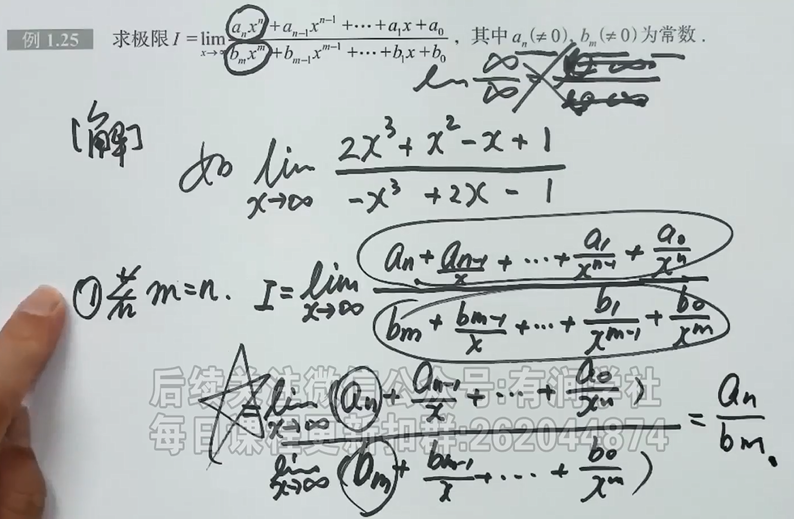 例 1.25 求极限 I = lim_{x→∞} (a_n x^n + a_{n-1} x^{n-1} + ··· + a_1 x + a_0) / (b_m x^m + b_{m-1} x^{m-1} + ··· + b_1 x + b_0) , 其中 a_n (≠0), b_m (≠0) 为常数 .
∞/∞
[解]
如 lim_{x→∞} (2x^3 + x^2 - x + 1) / (-x^3 + 2x - 1)
① 若 m=n. I = lim_{x→∞} (a_n + a_{n-1}/x + ··· + a_1/x^{n-1} + a_0/x^n) / (b_m + b_{m-1}/x + ··· + b_1/x^{m-1} + b_0/x^m)
= lim_{x→∞} (a_n + a_{n-1}/x + ··· + a_0/x^n) / lim_{x→∞} (b_m + b_{m-1}/x + ··· + b_0/x^m) = a_n/b_m .
后续关注微信公众号:有润学社
每日课程更新扣群:262044874